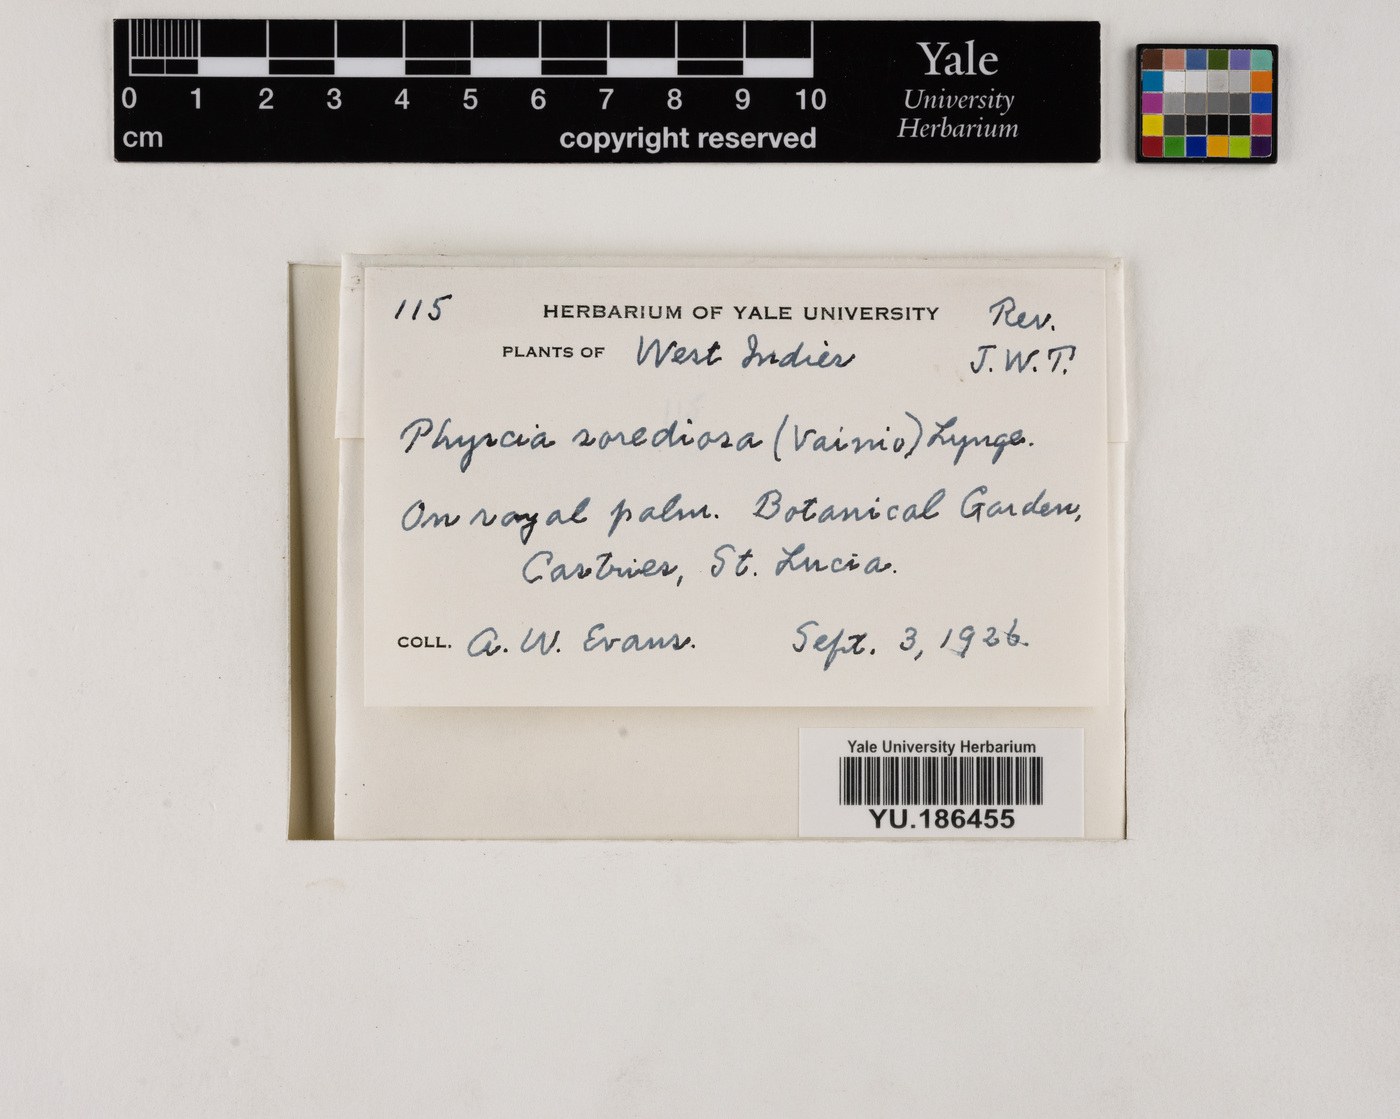 0 1 2 3 4 5 6 7 8 9 10
cm
copyright reserved
Yale
University
Herbarium
115
HERBARIUM OF YALE UNIVERSITY
Rev.
PLANTS OF West Indies
J. W. T.
Physcia sorediosa (Vainio) Lynge.
On royal palm. Botanical Garden,
Castries, St. Lucia.
COLL. A. W. Evans. Sept. 3, 1926.
Yale University Herbarium
YU.186455